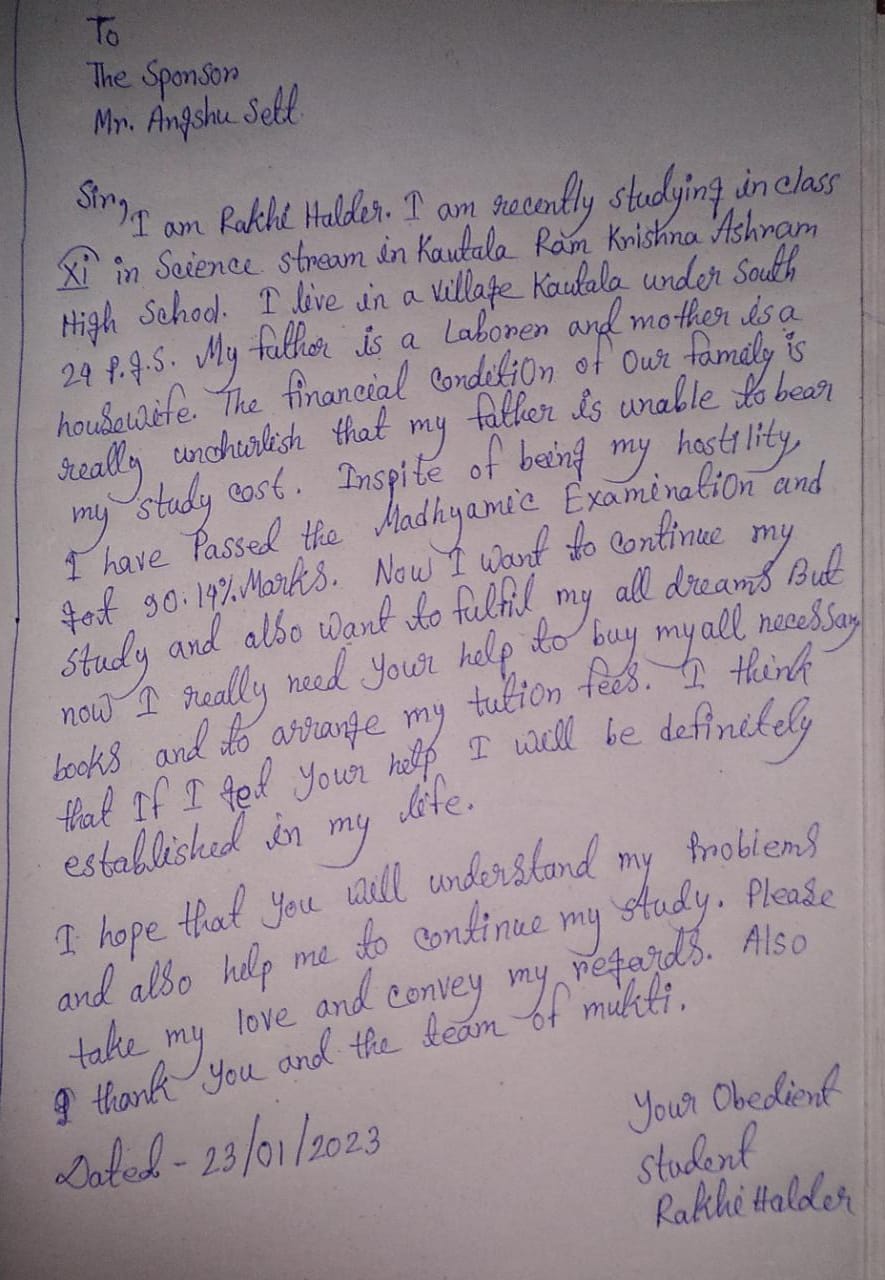 To
The Sponsor
Mr. Angshu Sett
Sir,
I am Rakhi Halder. I am recently studying in class
XI in Science stream in Kautala Ram Krishna Ashram
High School. I live in a village Kautala under South
24 P.g.S. My father is a Laborer and mother is a
housewife. The financial condition of Our family is
really uncherlish that my father is unable to bear
my study cost. Inspite of being my hostility,
I have Passed the Madhyamic Examination and
got 90.14% Marks. Now I want to continue my
study and also want to fulfil my all dreams But
now I really need your help to buy my all necessay
books and to arrange my tution fees. I think
that If I get your help I will be definitely
established in my life.
I hope that you will understand my Problems
and also help me to continue my study. Please
take my love and convey my regards. Also
I thank you and the team of mukti.
Dated - 23/01/2023
Your Obedient
Student
Rakhi Halder